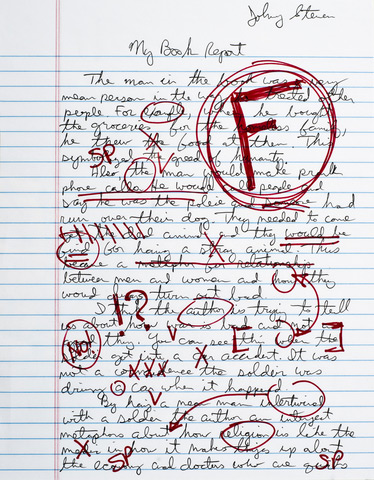 Johny Steven
My Book Report
The man in the book was a very
mean person in the way he treated other
people. For where he bought
the groceries for the homeless family,
he threw the food at them. This
symbolized the greed of humanity.
Also, the man would make prank
phone calls. He would people
say he was the police and someone had
run over their dog. They needed to come
get the dead animal and they would be
for having a stray animal. This
became a metaphor for relationship
between men and women and how they
would turn out bad.
the author is trying to tell
us about how and not
thing. You can see this when the
got into a car accident. It was
not a the soldier was
driving a car when it happened.
By having a mean man intertwined
with a soldier the author can interject
metaphors about how religion is like the
in how it makes up along
the economy and doctors who are
F
SP
!?
No!
SP
SP